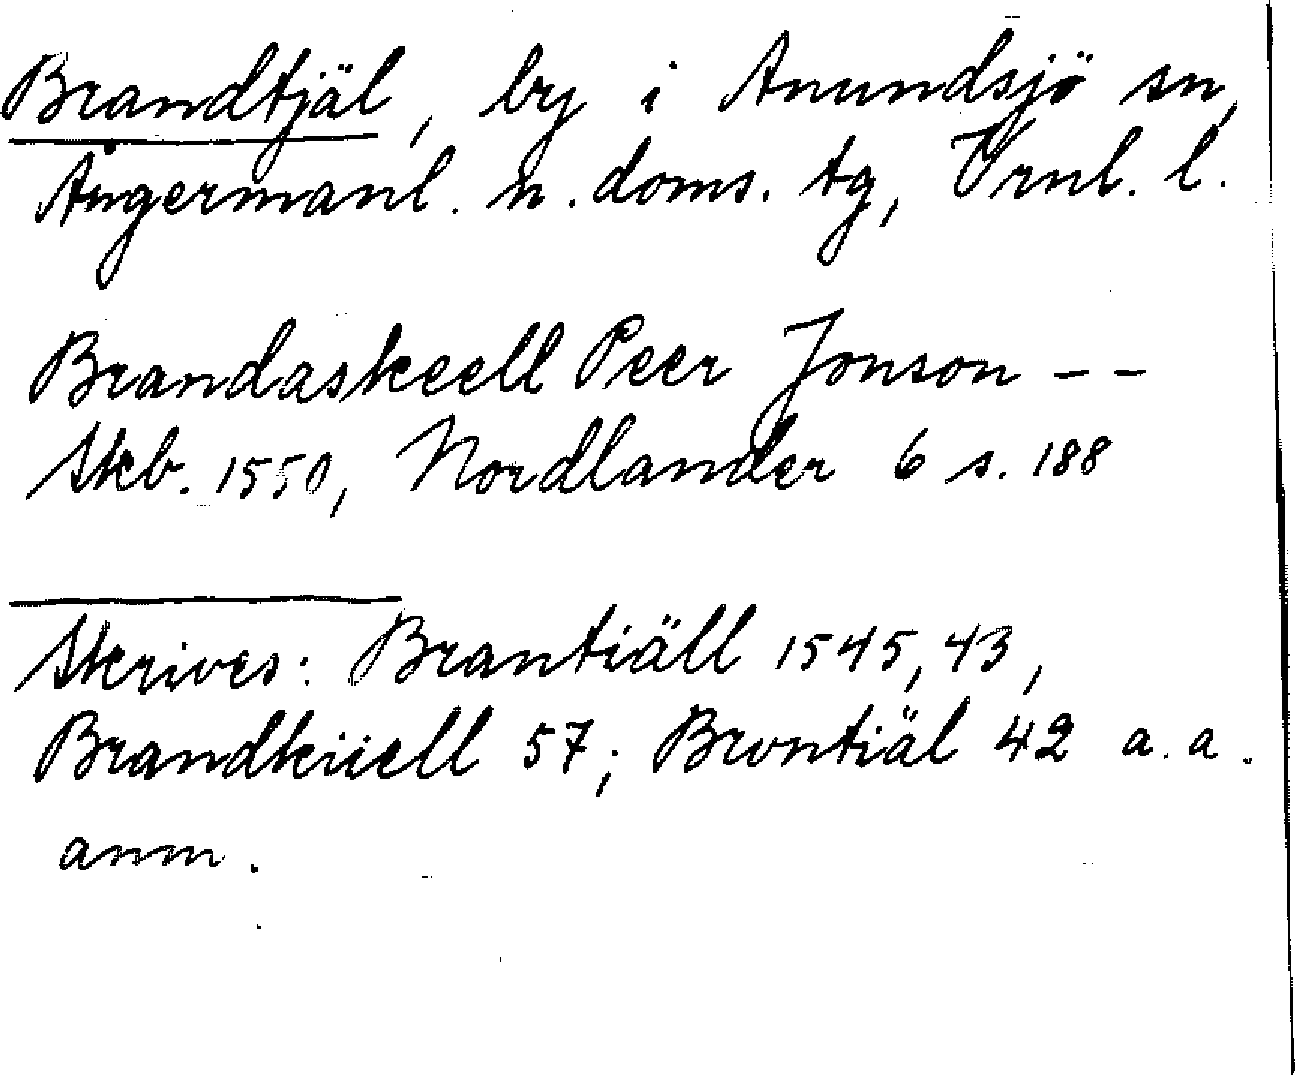 Brandtjäl, by i Anundsjö sn,
Ångermanl. n. doms. tg, Vrnl. l.
Brandaskeell Peer Jonson - -
Skb. 1550, Nordlander 6 s. 188
Skrives: Brantiäll 1545, 43,
Brandkiiell 57; Brontiäl 42 a. a.
anm.